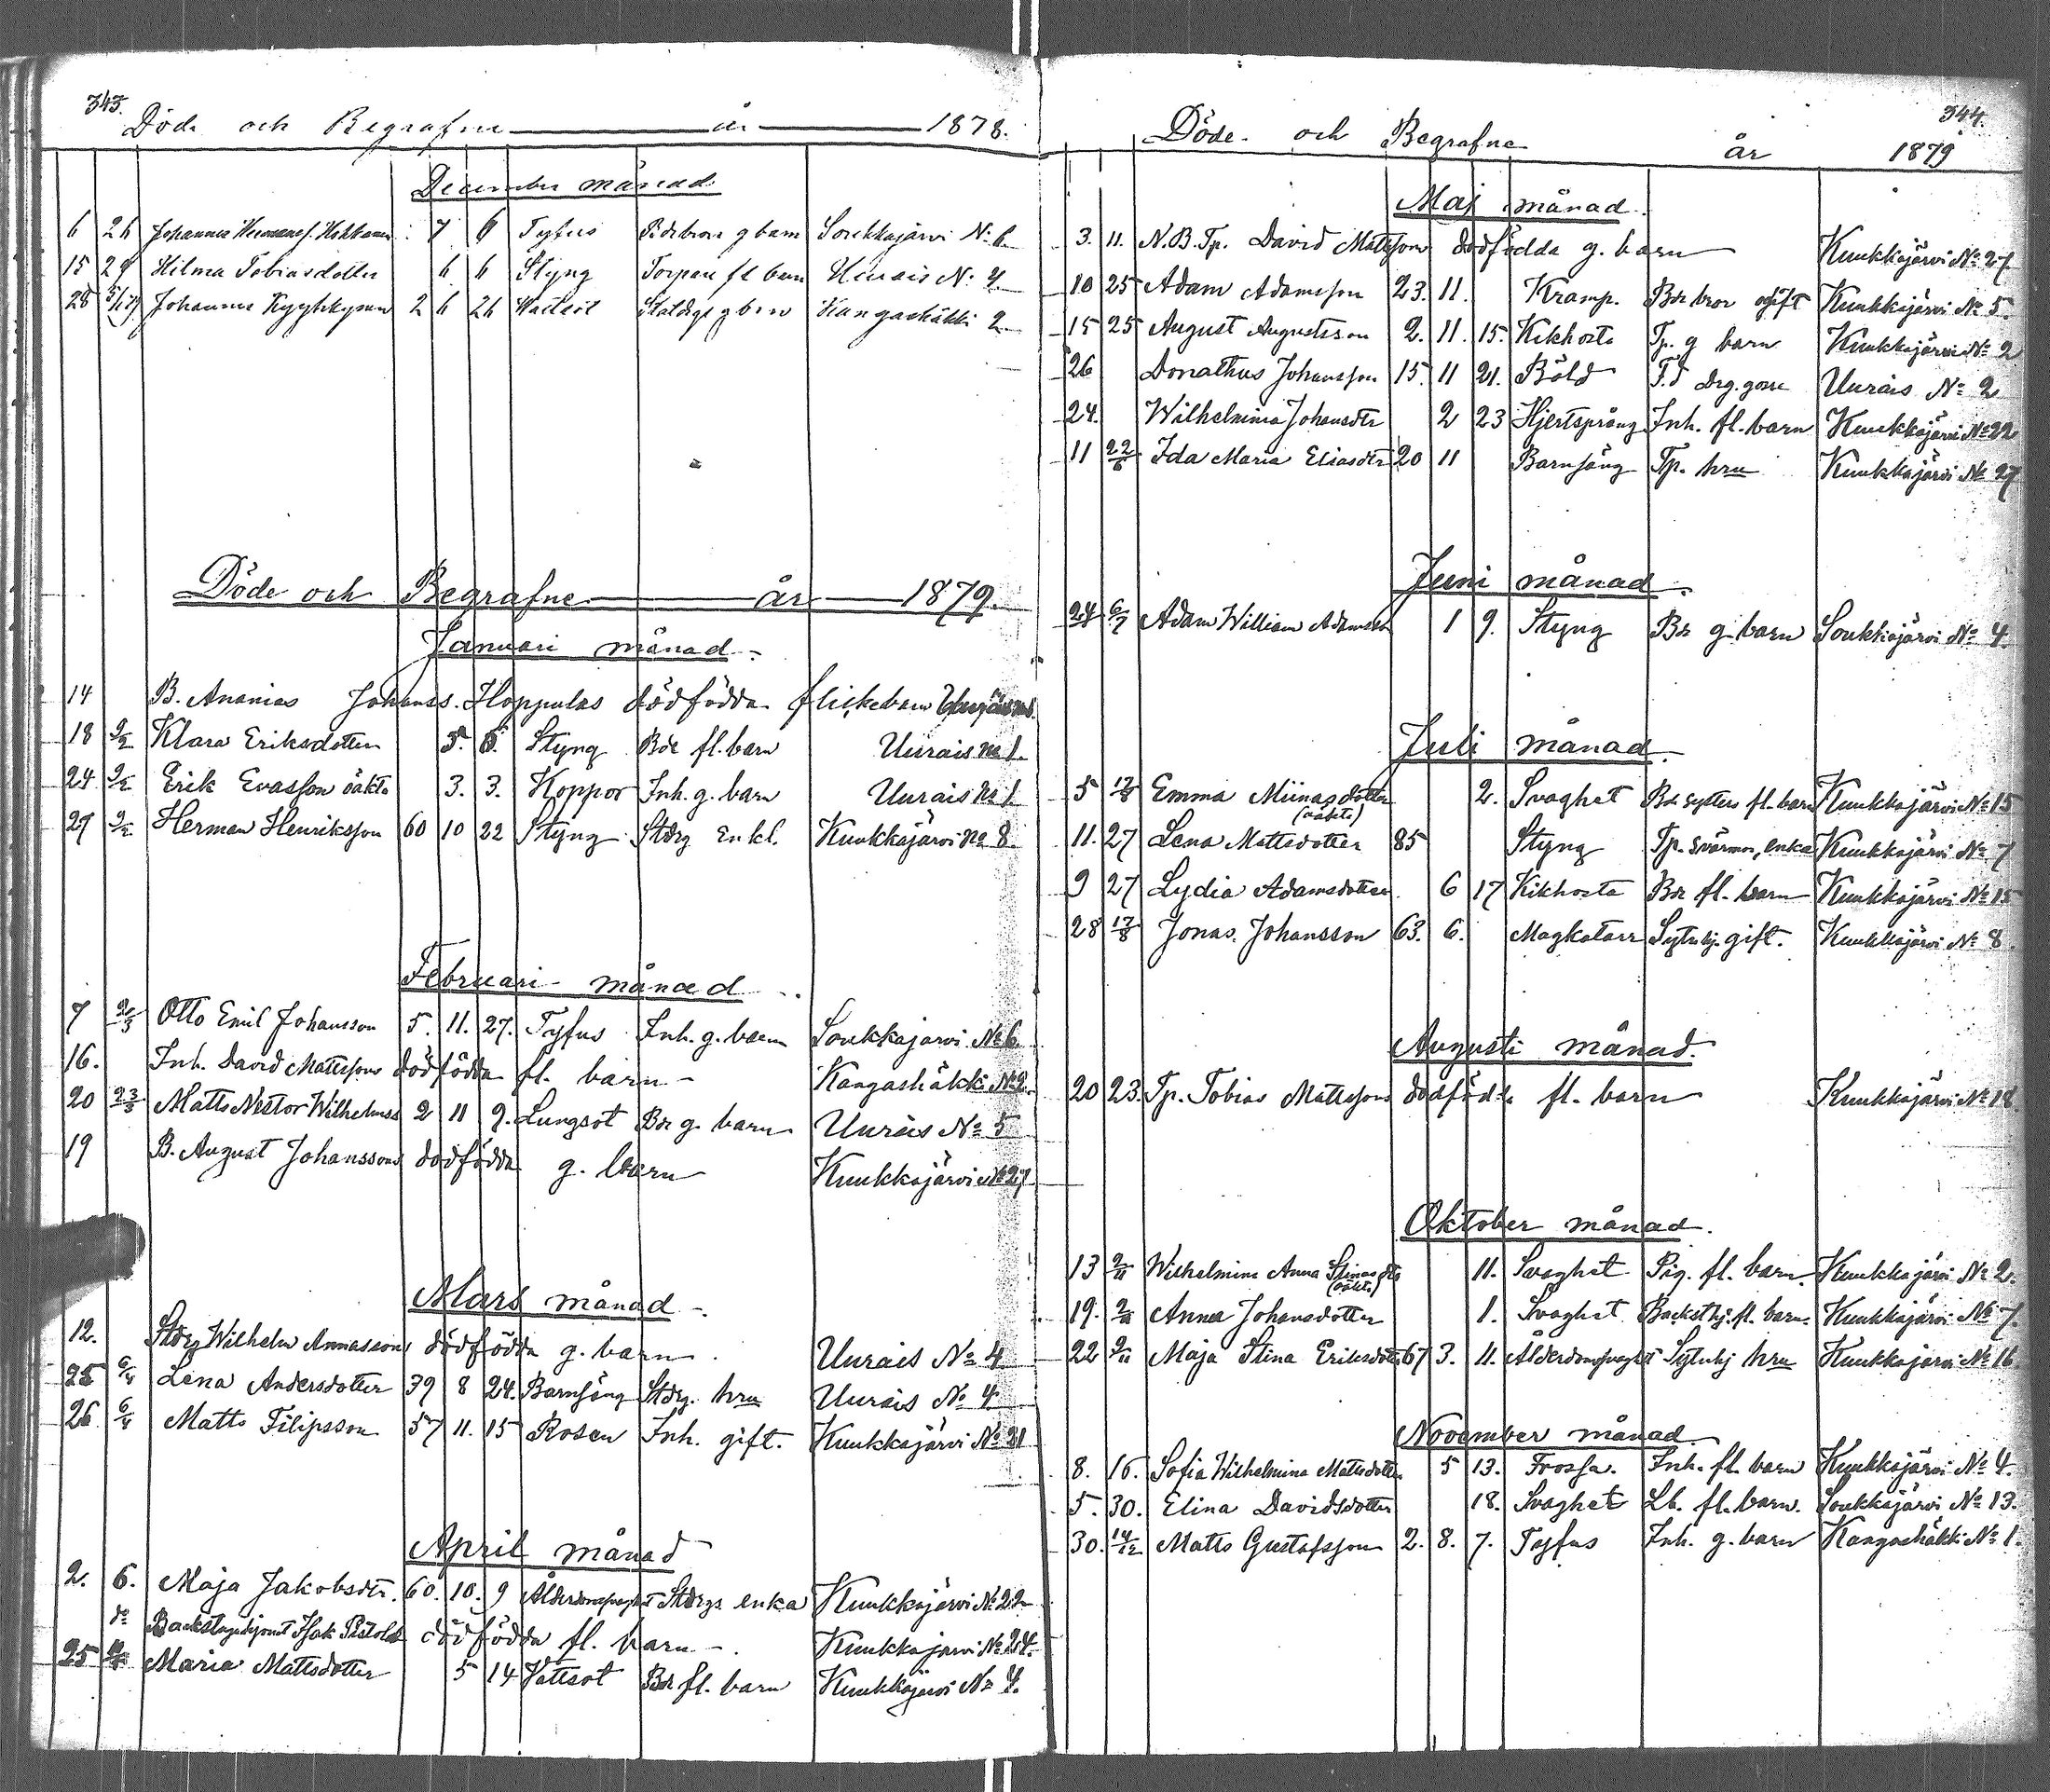 343.
Döde och Begrafne år 1878.
December månad
6 26 Johannes 7 6 Tyfus g barn Soukkajärvi No 6
15 29 Hilma Tobiasdotter 6 6 Styng Torpare fl barn Uurais No 4
28 5/1 79 Johannes 2 6 26 Wattsot g barn Kangashäkki 2
Döde och Begrafne år 1879.
Januari månad
14 B. Ananias Johanss. Hoppulas dödfödda flickebarn
18 9/2 Klara Eriksdotter 5. 5. Styng Bde fl. barn Uurais No 1.
24 9/2 Erik Evasson oäkta 3. 3. Koppor Inh. g. barn Uurais No 1
27 9/2 Herman Henriksson 60 10 22 Styng Stdrg Enkl. Kuukkajärvi No 8.
Februari månad
7 2/3 Otto Emil Johansson 5. 11. 27. Tyfus Inh. g. barn Soukkajärvi No 6.
16. Inh. David Mattssons dödfödda fl. barn Kangashäkki No 2.
20 23/3 Matts Nestor Wilhelmss 2 11 9. Lungsot Bdr g. barn Uurais No 5
19 B. August Johanssons dödfödda g. barn Kuukkajärvi No 27
Mars månad
12. Stdrg Wilhelm Annassons dödfödda g. barn Uurais No 4
25 6/4 Lena Andersdotter 39 8 24. Barnsäng Stdrg. hru Uurais No 4
26 6/4 Matts Filipsson 57 11. 15 Rosen Inh. gift. Kuukkajärvi No 21
April månad
2. 6. Maja Jakobsdtr. 60. 10. 9 Ålderdomssvaghet Stdrgs enka Kuukkajärvi No 22
do Backstuguhjonet Isak dödfödda fl. barn Kuukkajärvi No 24.
25 Maria Mattsdotter 5 14 Vattsot Bdr fl. barn Kuukkajärvi No 4.
344.
Döde och Begrafne år 1879
Maj månad.
3. 11. N.B. Tp. David Mattssons dödfödda g. barn Kuukkajärvi No 27
10 25 Adam Adamsson 23. 11. Kramp. Bdr bror ogift Kuukkajärvi No 5.
15 25 August Augustsson 2. 11. 15. Kikhosta Tp. g barn Kuukkajärvi No 2
26 Donathus Johansson 15. 11 21. Böld drg. gosse Uurais No 2
24. Wilhelmina Johansdtr 2 23 Hjertsprång Inh. fl. barn Kuukkajärvi No 22
11 22/6 Ida Maria Eliasdtr 20 11 Barnsäng Tp. hru Kuukkajärvi No 27
Juni månad.
24 6/7 Adam William Adamsson 1 9. Styng Bdr g. barn Soukkajärvi No 4.
Juli månad.
5 17/8 Emma Miinasdotter (oäkta) 2. Svaghet Bdr systers fl. barn Kuukkajärvi No 15
11. 27 Lena Mattsdotter 85 Styng Tp. svärmor, enka Kuukkajärvi No 7
9 27 Lydia Adamsdotter 6 17 Kikhosta Bdr fl. barn Kuukkajärvi No 15
28 17/8 Jonas Johansson 63. 6. Magkatarr Sytnhj. gift. Kuukkajärvi No 8.
Augusti månad.
20 23. Tp. Tobias Mattssons dödfödda fl. barn Kuukkajärvi No 18.
Oktober månad.
13 2/11 Wilhelmina Anna Stinasdtr (oäkta) 11. Svaghet Pig. fl. barn. Kuukkajärvi No 2.
19. 2/11 Anna Johansdotter 1. Svaghet Backsthj. fl. barn. Kuukkajärvi No 7.
22 9/11 Maja Stina Eriksdotter 67 3. 11. Ålderdomssvaghet Sytnhj hru Kuukkajärvi No 16.
November månad.
8. 16. Sofia Wilhelmina Mattsdotter 5 13. Frossa. Inh. fl. barn Kuukkajärvi No 4.
5. 30. Elina Davidsdotter 18. Svaghet Lb. fl. barn. Soukkajärvi No 13.
30. 14/12 Matts Gustafsson 2. 8. 7. Tyfus Inh. g. barn Kangashäkki No 1.